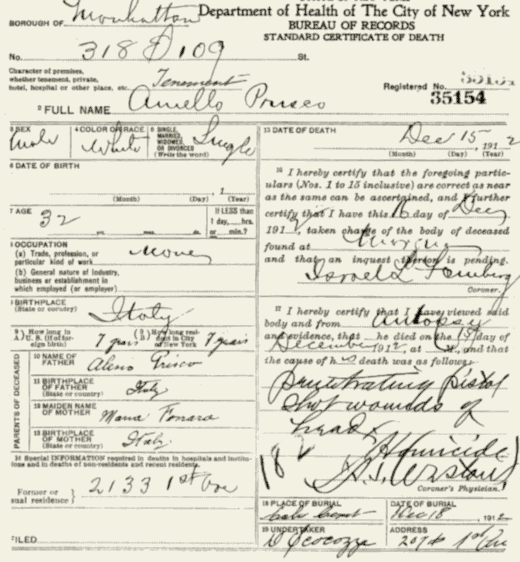 BOROUGH OF Manhattan
Department of Health of The City of New York
BUREAU OF RECORDS
STANDARD CERTIFICATE OF DEATH
No. 318 109 St.
Character of premises,
whether tenement, private,
hotel, hospital or other place, etc. Tenement
Registered No.
35154
2 FULL NAME Aniello Prusco
3 SEX Male
4 COLOR OR RACE White
5 SINGLE, MARRIED, WIDOWED OR DIVORCED (Write the word) Single
6 DATE OF BIRTH
(Month) (Day) (Year)
7 AGE 32 yrs. mos. da.
If LESS than 1 day, hrs. or min.?
8 OCCUPATION
(a) Trade, profession, or particular kind of work
(b) General nature of industry, business or establishment in which employed (or employer)
9 BIRTHPLACE (State or country) Italy
How long in U. S. (if of foreign birth) 7 years
How long resident in City of New York 7 years
PARENTS OF DECEASED
10 NAME OF FATHER Prisco
11 BIRTHPLACE OF FATHER (State or country) Italy
12 MAIDEN NAME OF MOTHER Maria
13 BIRTHPLACE OF MOTHER (State or country) Italy
14 Special INFORMATION required in deaths in hospitals and institutions and in deaths of non-residents and recent residents.
Former or usual residence 2133 1st Ave
FILED
15 DATE OF DEATH Dec 15, 1912
(Month) (Day) (Year)
16 I hereby certify that the foregoing particulars (Nos. 1 to 15 inclusive) are correct as near
as the same can be ascertained, and I further
certify that I have this 16 day of Dec
191 , taken charge of the body of deceased
found at
and that an inquest thereon is pending.
Israel L. Feinberg
Coroner.
17 I hereby certify that I have viewed said
body and from autopsy
and evidence, that he died on the 15 day of
December 1912, at M., and that
the cause of his death was as follows:
Penetrating pistol
shot wounds of
head
Homicide
Coroner's Physician.
18 PLACE OF BURIAL
DATE OF BURIAL Dec 18, 1912
19 UNDERTAKER D Cocozza
ADDRESS 207 1st Ave